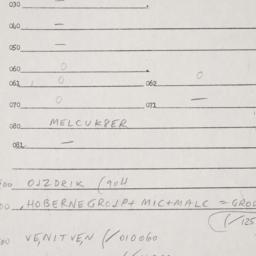 030 —
040 —
050 —
060 0
061 0 062 0
070 0 071 —
080 MELCUKBER
081 —
OJZDRIK (904
HOBERNEGROJP+ MIC+MALC = GROB
(/125
VENITVEN (/010060